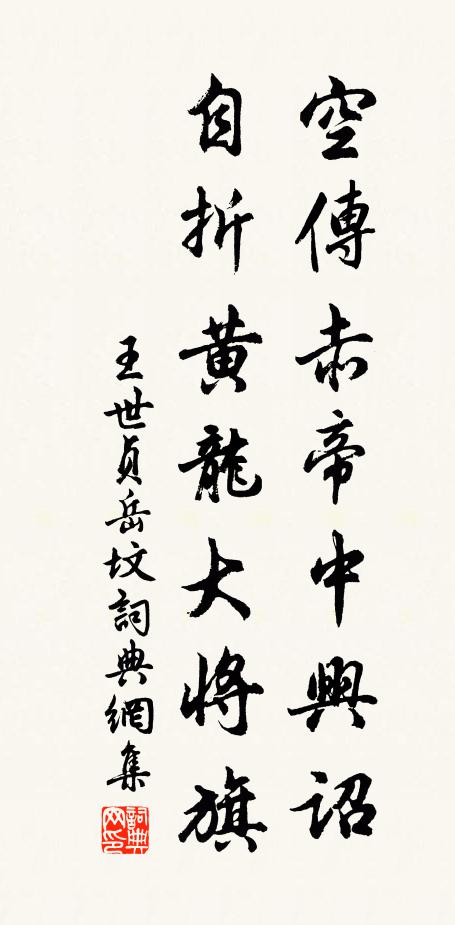 空傳赤帝中興詔
自折黃龍大將旗
王世貞岳墳詞典網集
詞典
网印